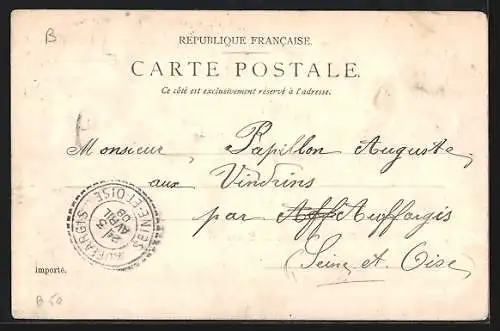 B
RÉPUBLIQUE FRANÇAISE.
CARTE POSTALE.
Ce côté est exclusivement réservé à l'adresse.
Monsieur Papillon Auguste
aux Vindrins
par Auffargis
Seine et Oise
SEINE ET OISE
AVRIL
importé.
B 50